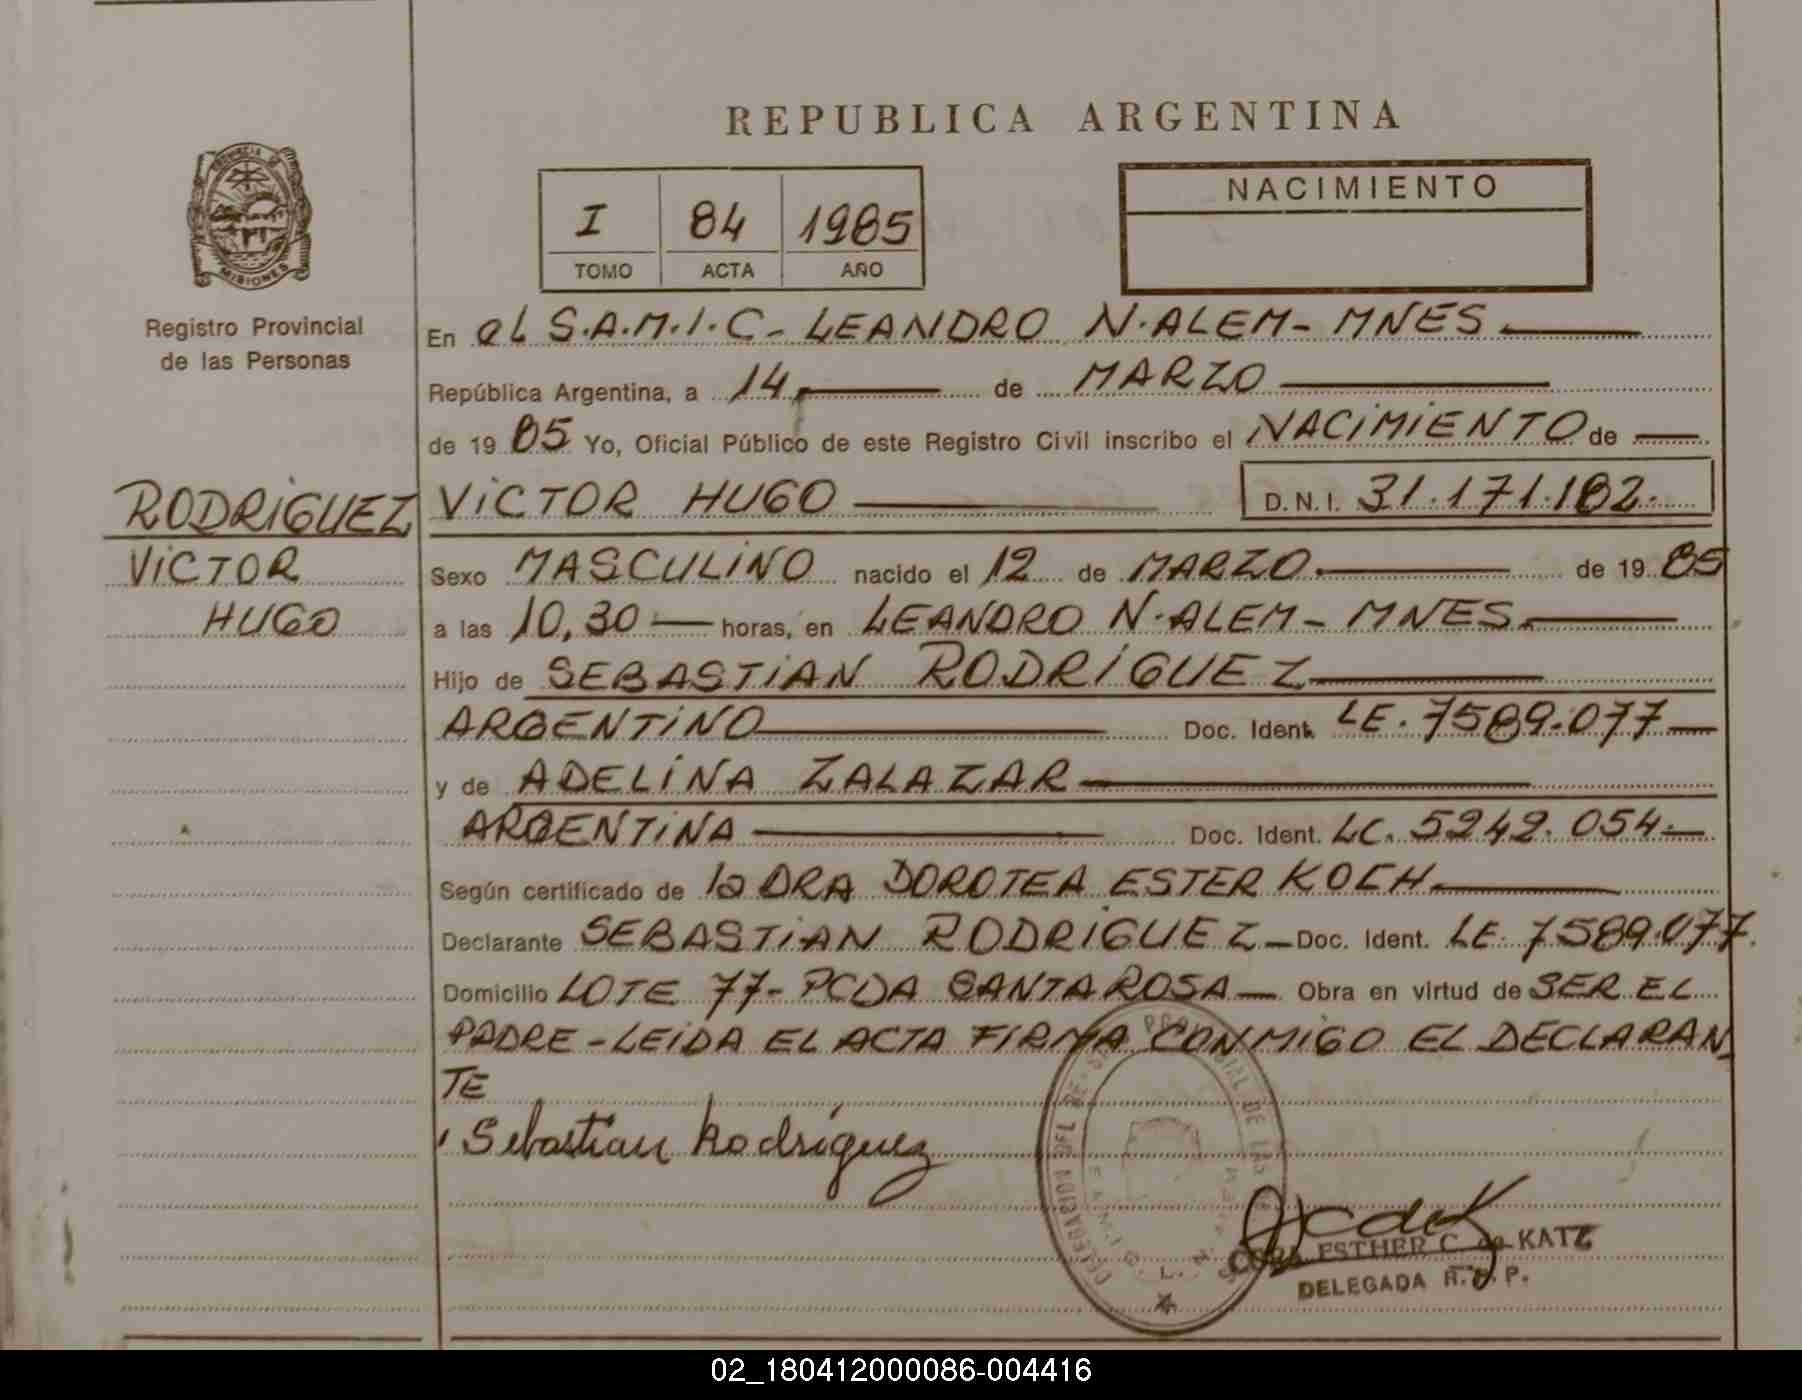 REPUBLICA ARGENTINA
PROVINCIA DE
MISIONES
Registro Provincial
de las Personas
I 84 1985
TOMO ACTA AÑO
NACIMIENTO
En eL S.A.M.I.C- LEANDRO N.ALEM- MNES
República Argentina, a 14 de MARZO
de 19 85 Yo, Oficial Público de este Registro Civil inscribo el NACIMIENTO de
RODRIGUEZ VICTOR HUGO D.N.I. 31.171.182.
VICTOR
HUGO
Sexo MASCULINO nacido el 12 de MARZO. de 19 85
a las 10,30 horas, en LEANDRO N.ALEM- MNES.
Hijo de SEBASTIAN RODRIGUEZ
ARGENTINO Doc. Ident. LE. 7589.077
y de ADELINA ZALAZAR
ARGENTINA Doc. Ident. LC. 5242.054.
Según certificado de la DRA DOROTEA ESTER KOCH.
Declarante SEBASTIAN RODRIGUEZ Doc. Ident. LE. 7589.077.
Domicilio LOTE 77- PCDA SANTA ROSA Obra en virtud de SER EL
PADRE-LEIDA EL ACTA FIRMA CONMIGO EL DECLARAN_
TE
Sebastian Rodríguez
ESTHER C. de KATZ
DELEGADA R. P.
02_180412000086-004416